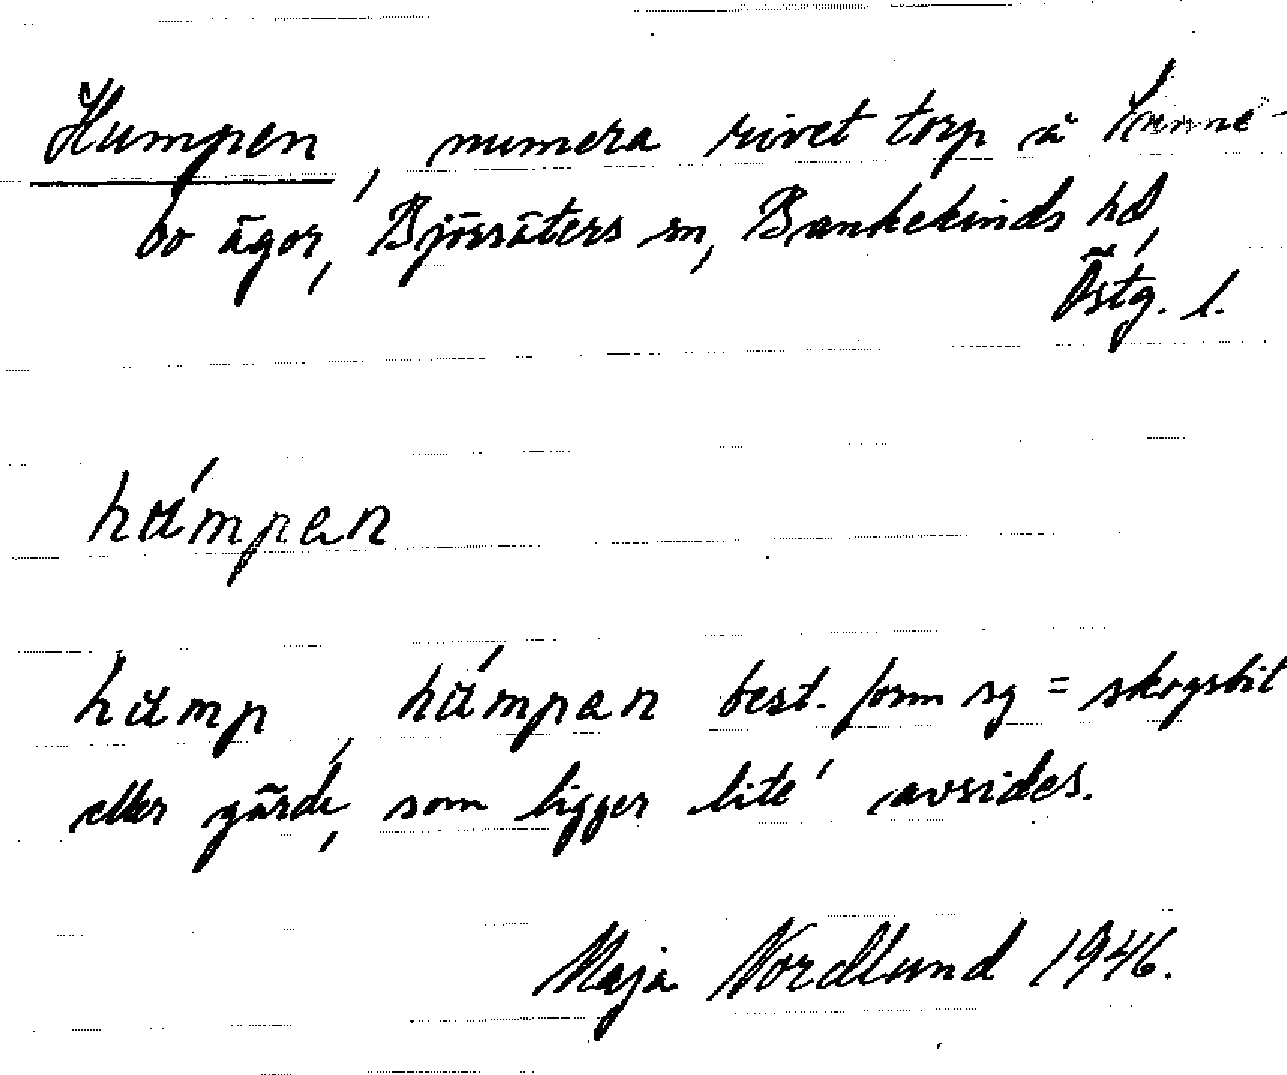 Humpen, numera rivet torp å
bo ägor, Björsäters sn, Bankekinds hd,
Östg. l.
húmpan
hump, húmpan best. form sg = skogsbit
eller gärde, som ligger lite' avsides.
Maja Nordlund 1946.